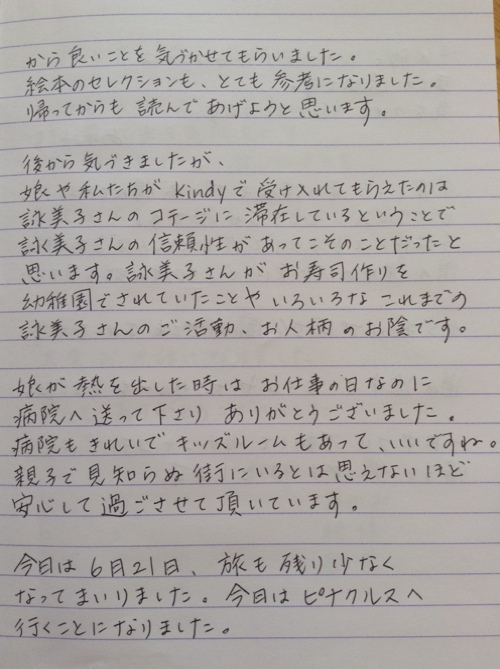 から良いことを気づかせてもらいました。
絵本のセレクションも、とても参考になりました。
帰ってからも読んであげようと思います。
後から気づきましたが、
娘や私たちがKindyで受け入れてもらえたのは
詠美子さんのコテージに滞在しているということで
詠美子さんの信頼性があってこそのことだったと
思います。詠美子さんがお寿司作りを
幼稚園でされていたことやいろいろなこれまでの
詠美子さんのご活動、お人柄のお陰です。
娘が熱を出した時はお仕事の日なのに
病院へ送って下さりありがとうございました。
病院もきれいでキッズルームもあって、いいですね。
親子で見知らぬ街にいるとは思えないほど
安心して過ごさせて頂いています。
今日は6月21日、旅も残り少なく
なってまいりました。今日はピナクルスへ
行くことになりました。